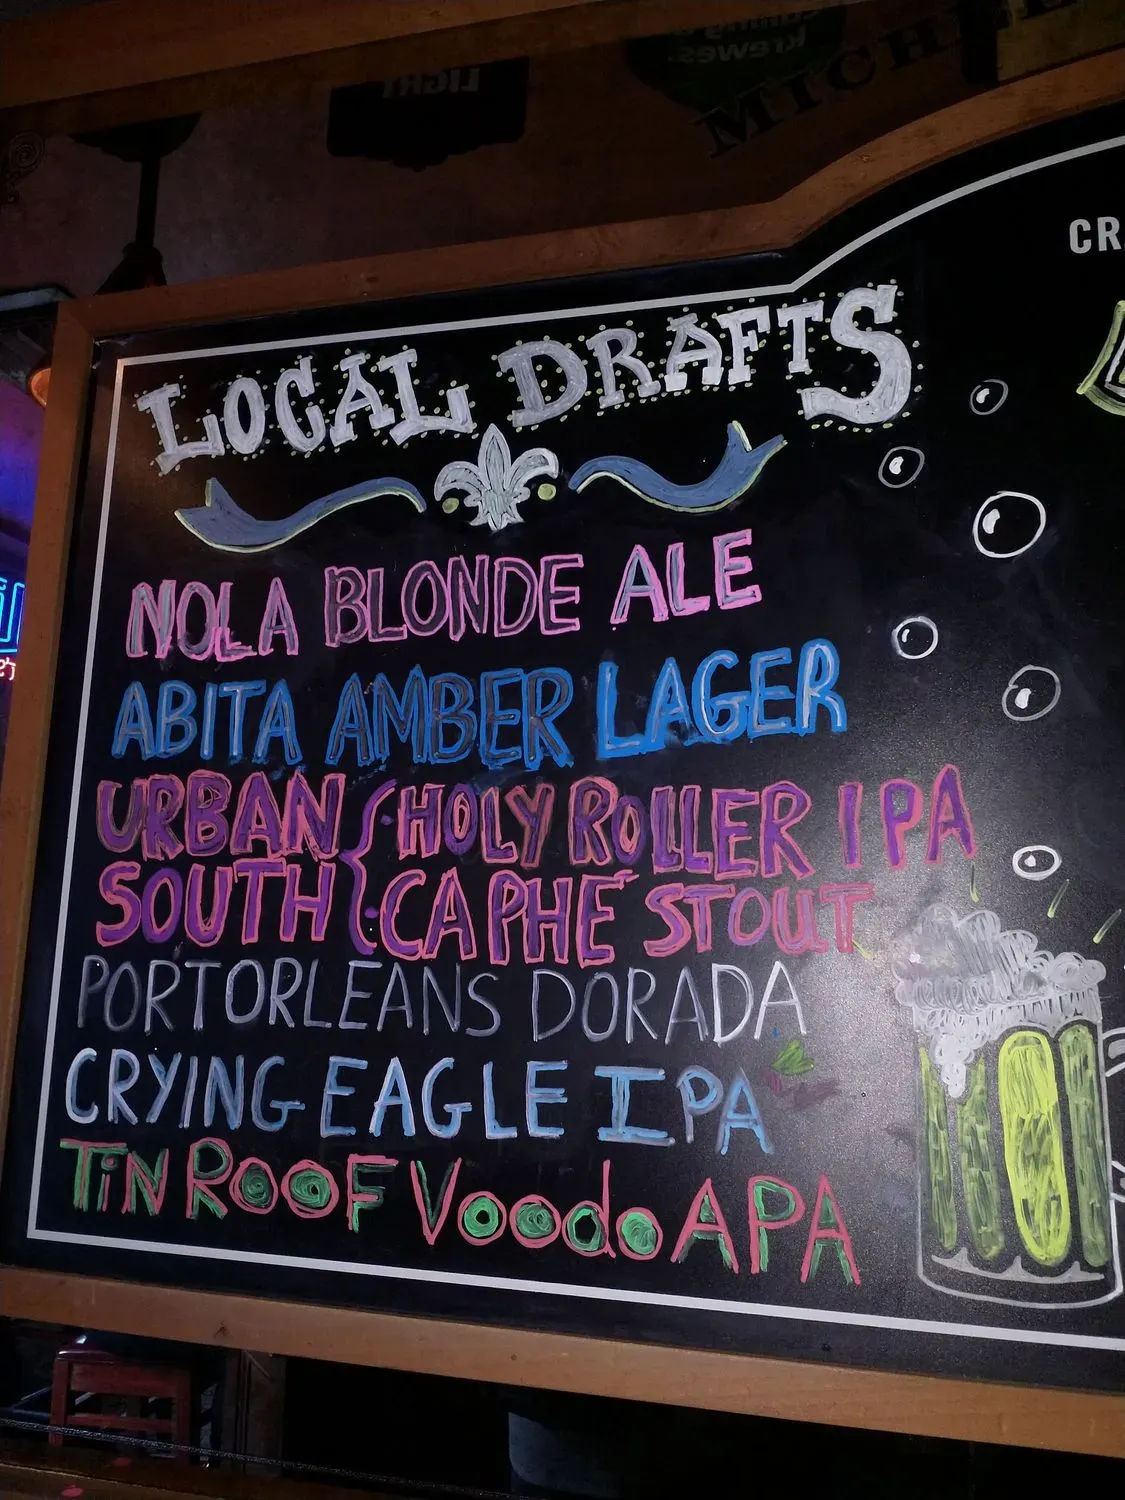 LIGHT
krewes.
MICH
CR
LOCAL DRAFTS
NOLA BLONDE ALE
ABITA AMBER LAGER
URBAN SOUTH { · HOLY ROLLER IPA
· CAPHE STOUT
PORTORLEANS DORADA
CRYING EAGLE IPA
TiN ROOF Voodo APA